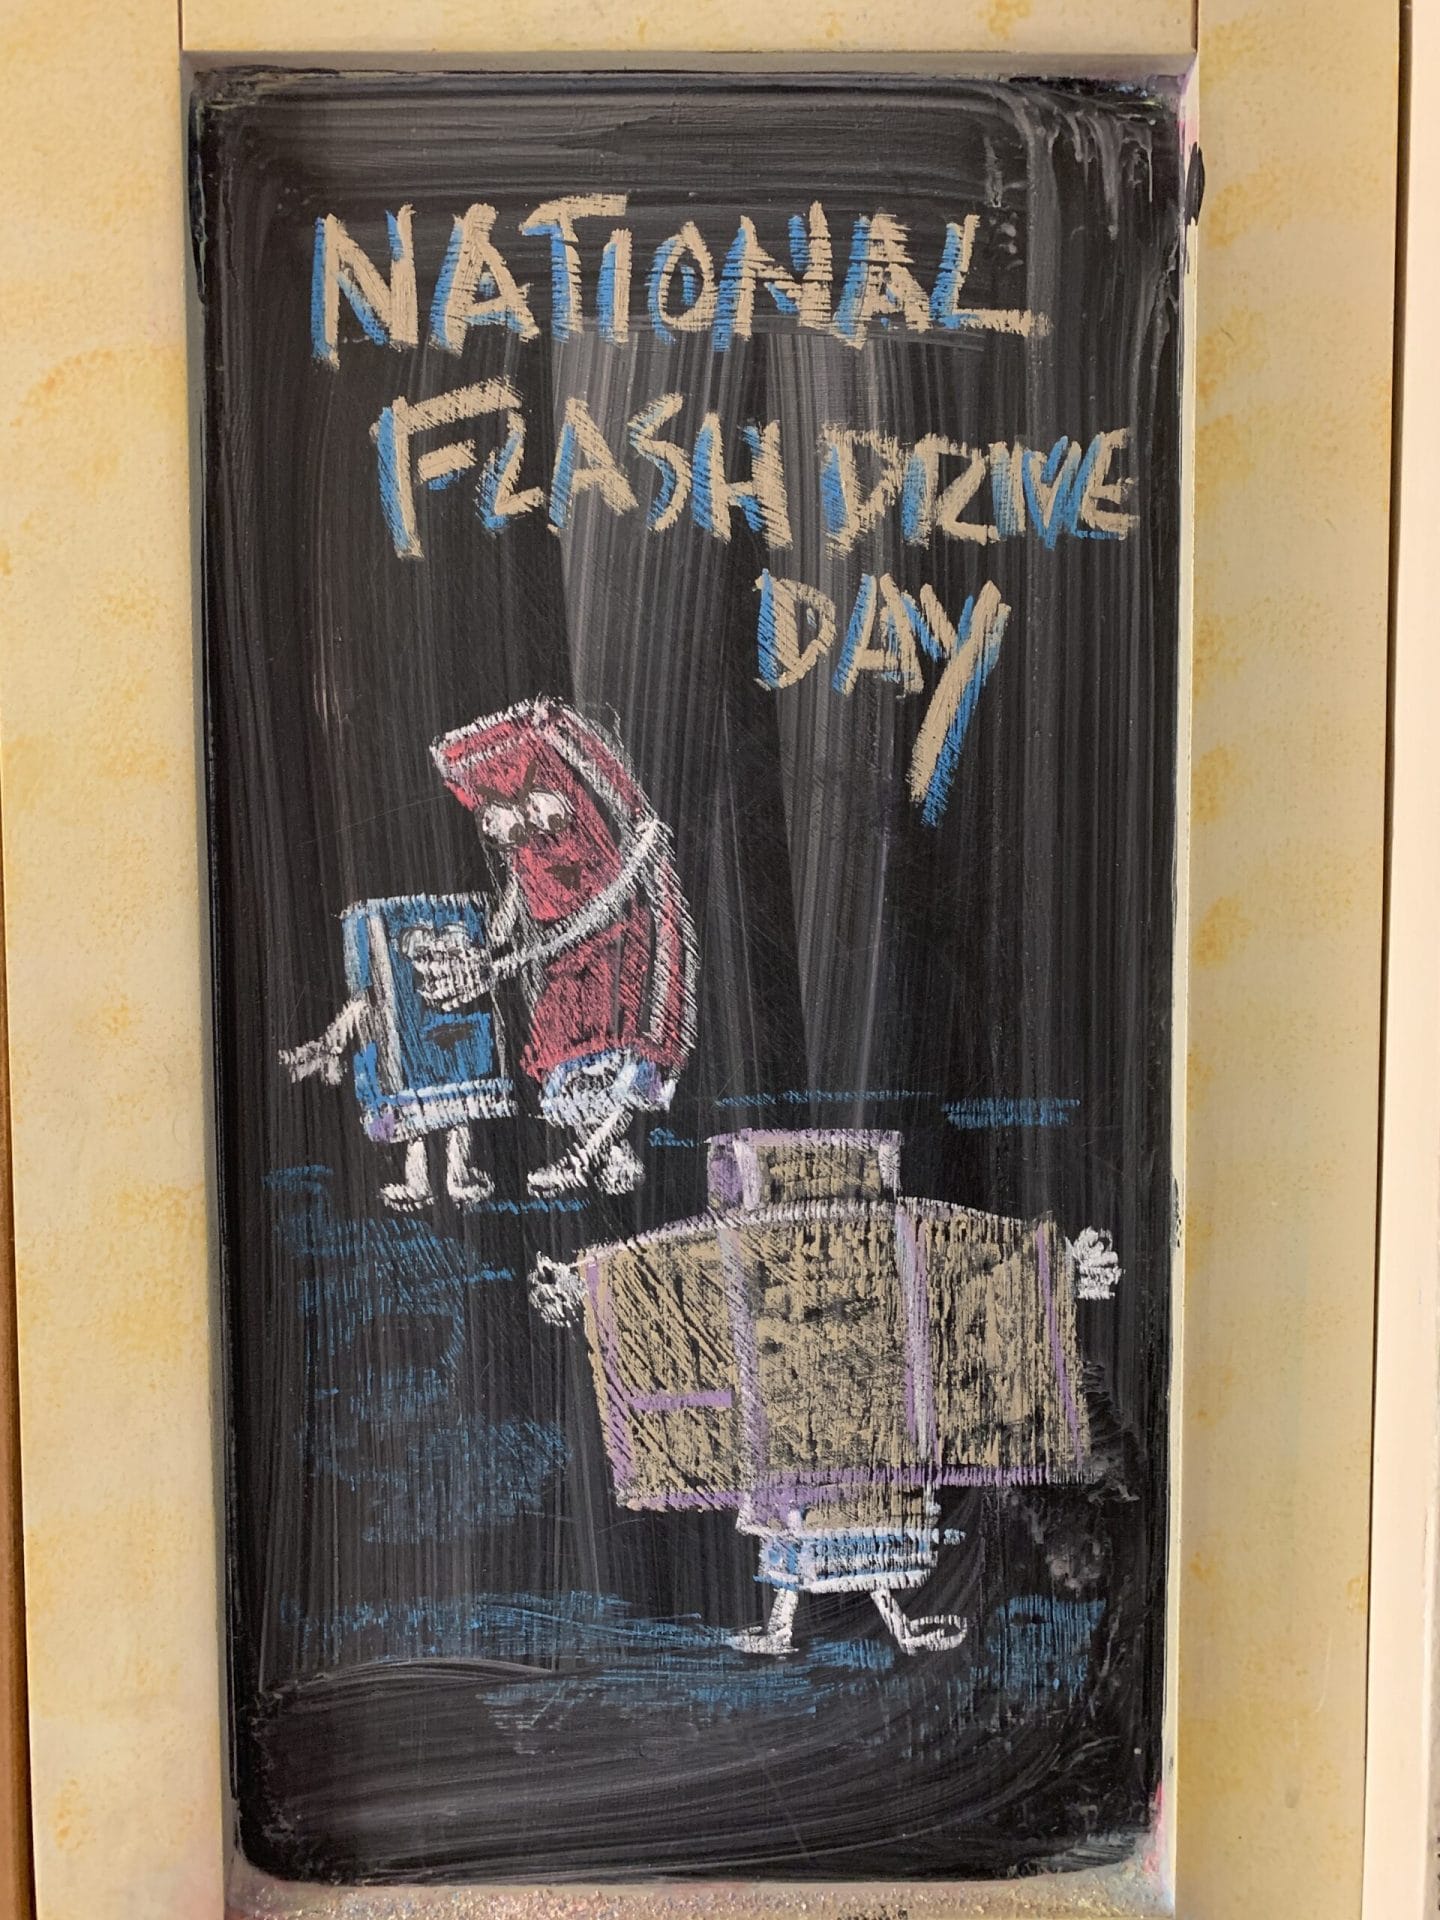 NATIONAL
FLASH DRIVE
DAY